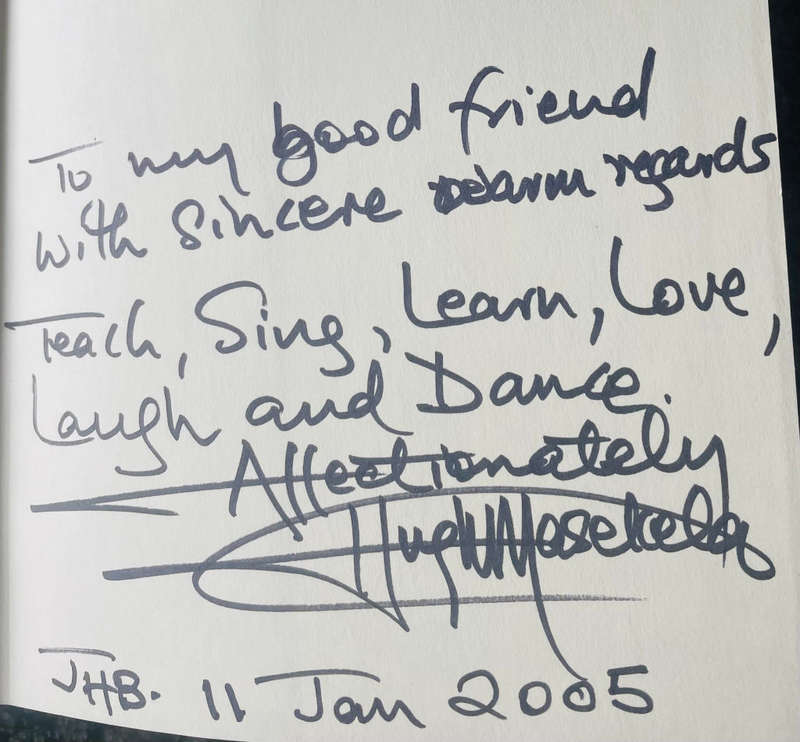 To my good friend
with sincere warm regards
Teach, Sing, Learn, Love,
Laugh and Dance.
Affectionately
Hugh Masekela
JHB. 11 Jan 2005